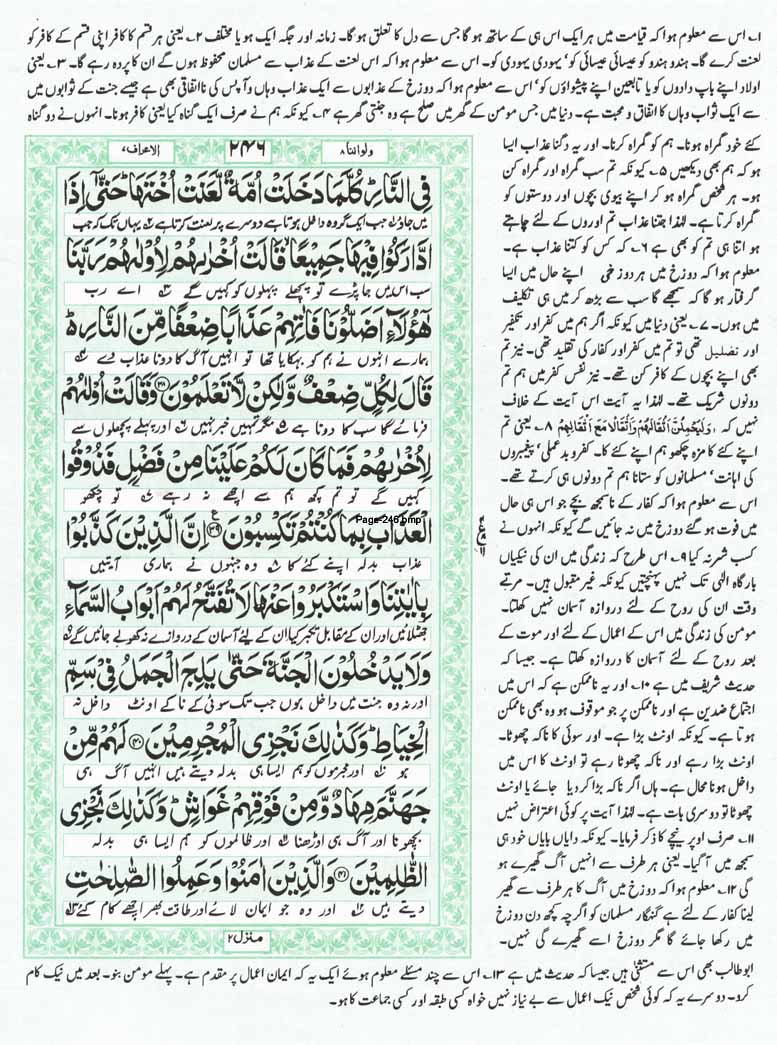 ۱۔ اس سے معلوم ہوا کہ قیامت میں ہر ایک اس ہی کے ساتھ ہو گا جس سے دل کا تعلق ہو گا۔ زمانہ اور جگہ ایک ہو یا مختلف ۲۔ یعنی ہر قسم کا کافر اپنی قسم کے کافر کو
لعنت کرے گا۔ ہندو ہندو کو عیسائی عیسائی کو' یہودی یہودی کو۔ اس سے معلوم ہوا کہ اس لعنت کے عذاب سے مسلمان محفوظ ہوں گے ان کا پردہ رہے گا۔ ۳۔ یعنی
اولاد اپنے باپ دادوں کو یا تابعین اپنے پیشواؤں کو' اس سے معلوم ہوا کہ دوزخ کے عذابوں سے ایک عذاب وہاں کی ناتفاقی بھی ہے جیسے جنت کے ثوابوں میں
سے ایک ثواب وہاں کا اتفاق و محبت ہے۔ دنیا میں جس مومن کے گھر میں صلح ہے وہ جنتی گھر ہے ۴۔ کیونکہ ہم نے صرف ایک گناہ کیا یعنی کافر ہونا۔ انہوں نے دو گناہ
ولواننا ۸
۲۴۶
الاعراف ۷
فِي النَّارِ كُلَّمَا دَخَلَتْ اُمَّةٌ لَّعَنَتْ اُخْتَهَا حَتّٰى اِذَا
میں جاؤ جب ایک گروہ داخل ہوتا ہے دوسرے پر لعنت کرتا ہے یہاں تک کہ جب
ادَّارَكُوْا فِيْهَا جَمِيْعًا قَالَتْ اُخْرٰىهُمْ لِاُوْلٰىهُمْ رَبَّنَا
سب اس میں جا پڑے تو پچھلے پہلوں کو کہیں گے اے رب
هٰٓؤُلَآءِ اَضَلُّوْنَا فَاٰتِهِمْ عَذَابًا ضِعْفًا مِّنَ النَّارِ
ہمارے انہوں نے ہم کو بہکایا تھا تو انہیں آگ کا دونا عذاب دے
قَالَ لِكُلٍّ ضِعْفٌ وَّلٰكِنْ لَّا تَعْلَمُوْنَ ﴿۳۸﴾ وَقَالَتْ اُوْلٰىهُمْ
فرمائے گا سب کا دونا ہے مگر تمہیں خبر نہیں اور پہلے پچھلوں سے
لِاُخْرٰىهُمْ فَمَا كَانَ لَكُمْ عَلَيْنَا مِنْ فَضْلٍ فَذُوْقُوا
کہیں گے تو تم کچھ ہم سے اچھے نہ رہے تو چکھو
الْعَذَابَ بِمَا كُنْتُمْ تَكْسِبُوْنَ ﴿۳۹﴾ اِنَّ الَّذِيْنَ كَذَّبُوْا
Page-246.bmp
عذاب بدلہ اپنے کئے کا وہ جنہوں نے ہماری آیتیں
بِاٰيٰتِنَا وَاسْتَكْبَرُوْا عَنْهَا لَا تُفَتَّحُ لَهُمْ اَبْوَابُ السَّمَآءِ
جھٹلائیں اور ان کے مقابل تکبر کیا ان کے لیے آسمان کے دروازے نہ کھولے جائیں گے
وَلَا يَدْخُلُوْنَ الْجَنَّةَ حَتّٰى يَلِجَ الْجَمَلُ فِيْ سَمِّ
اور نہ وہ جنت میں داخل ہوں جب تک سوئی کے ناکے اونٹ داخل نہ
الْخِيَاطِ وَكَذٰلِكَ نَجْزِي الْمُجْرِمِيْنَ ﴿۴۰﴾ لَهُمْ مِّنْ
ہو اور مجرموں کو ہم ایسا ہی بدلہ دیتے ہیں انہیں آگ ہی
جَهَنَّمَ مِهَادٌ وَّمِنْ فَوْقِهِمْ غَوَاشٍ وَكَذٰلِكَ نَجْزِي
بچھونا اور آگ ہی اوڑھنا اور ظالموں کو ہم ایسا ہی بدلہ
الظّٰلِمِيْنَ ﴿۴۱﴾ وَالَّذِيْنَ اٰمَنُوْا وَعَمِلُوا الصّٰلِحٰتِ
دیتے ہیں اور وہ جو ایمان لائے اور طاقت بھر اچھے کام کئے
منزل ۲
کئے خود گمراہ ہونا۔ ہم کو گمراہ کرنا۔ اور یہ دگنا عذاب ایسا
ہو کہ ہم بھی دیکھیں ۵۔ کیونکہ تم سب گمراہ اور گمراہ کن
ہو۔ ہر شخص گمراہ ہو کر اپنے بیوی بچوں اور دوستوں کو
گمراہ کرتا ہے۔ لہٰذا جتنا عذاب تم اوروں کے لئے چاہتے
ہو اتنا ہی تم کو بھی ہے ۶۔ کہ کس کو کتنا عذاب ہے۔
معلوم ہوا کہ دوزخ میں ہر دوزخی اپنے حال میں ایسا
گرفتار ہو گا کہ سمجھے گا سب سے بڑھ کر میں ہی تکلیف
میں ہوں۔ ۷۔ یعنی دنیا میں کیونکہ اگر ہم میں کفر اور تکفیر
اور تضلیل تھی تو تم میں کفر اور کفار کی تقلید تھی۔ نیز تم
بھی اپنے بچوں کے کافر کن تھے۔ نیز نفس کفر میں ہم تم
دونوں شریک تھے۔ لہٰذا یہ آیت اس آیت کے خلاف
نہیں کہ وَلَيَحْمِلُنَّ اَثْقَالَهُمْ وَاَثْقَالًا مَّعَ اَثْقَالِهِمْ ۸۔ یعنی تم
اپنے کئے کا مزہ چکھو ہم اپنے کئے کا۔ کفر و بدعملی' پیغمبروں
کی اہانت' مسلمانوں کو ستانا ہم تم دونوں ہی کرتے تھے۔
اس سے معلوم ہوا کہ کفار کے ناسمجھ بچے جو اس ہی حال
میں فوت ہو گئے دوزخ میں نہ جائیں گے کیونکہ انہوں نے
کسب شر نہ کیا ۹۔ اس طرح کہ زندگی میں ان کی نیکیاں
بارگاہ الٰہی تک نہیں پہنچتیں کیونکہ غیر مقبول ہیں۔ مرتے
وقت ان کی روح کے لئے دروازہ آسمان نہیں کھلتا۔
مومن کی زندگی میں اس کے اعمال کے لئے اور موت کے
بعد روح کے لئے آسمان کا دروازہ کھلتا ہے۔ جیسا کہ
حدیث شریف میں ہے ۱۰۔ اور یہ ناممکن ہے کہ اس میں
اجتماع ضدین ہے اور ناممکن پر جو موقوف ہو وہ بھی ناممکن
ہوتا ہے۔ کیونکہ اونٹ بڑا ہے۔ اور سوئی کا ناکہ چھوٹا۔
اونٹ بڑا رہے اور ناکہ چھوٹا رہے تو اونٹ کا اس میں
داخل ہونا محال ہے۔ ہاں اگر ناکہ بڑا کر دیا جائے یا اونٹ
چھوٹا تو دوسری بات ہے۔ لہٰذا آیت پر کوئی اعتراض نہیں
۱۱۔ صرف اوپر نیچے کا ذکر فرمایا۔ کیونکہ دایاں بایاں خود ہی
سمجھ میں آ گیا۔ یعنی ہر طرف سے انہیں آگ گھیرے ہو
گی ۱۲۔ معلوم ہوا کہ دوزخ میں آگ کا ہر طرف سے گھیر
لینا کفار کے لئے ہے گنہگار مسلمان کو اگرچہ کچھ دن دوزخ
میں رکھا جائے گا مگر دوزخ اسے گھیرے گی نہیں۔
ابوطالب بھی اس سے مستثنیٰ ہیں جیسا کہ حدیث میں ہے ۱۳۔ اس سے چند مسئلے معلوم ہوئے ایک یہ کہ ایمان اعمال پر مقدم ہے۔ پہلے مومن بنو۔ بعد میں نیک کام
کرو۔ دوسرے یہ کہ کوئی شخص نیک اعمال سے بے نیاز نہیں خواہ کسی طبقہ اور کسی جماعت کا ہو۔